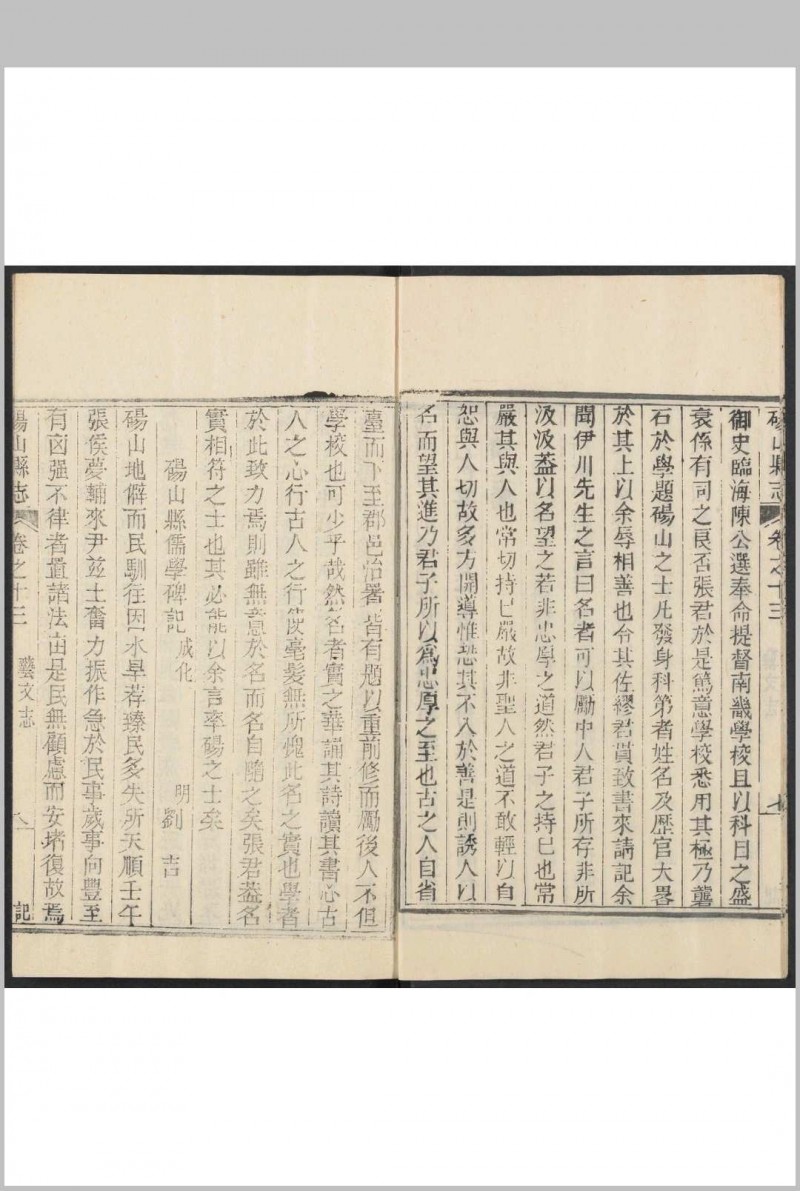 碭山縣志 卷之十三 七
御史臨海陳公選奉命提督南畿學校且以科目之盛
衰係有司之良否張君於是篤意學校悉用其極乃礱
石於學題碭山之士凡發身科第者姓名及歷官大畧
於其上以余辱相善也令其佐繆君貫致書來請記余
聞伊川先生之言曰名者可以勵中人君子所存非所
汲汲葢以名望之若非忠厚之道然君子之持巳也常
嚴其與人也常切持巳嚴故非聖人之道不敢輕以自
恕與人切故多方開導惟恐其不入於善是則誘人以
名而望其進乃君子所以為忠厚之至也古之人自省
臺而下至郡邑治署皆有題以重前修而勵後人不但
學校也可少乎哉然名者實之華誦其詩讀其書心古
人之心行古人之行俾毫髮無所愧此名之實也學者
於此致力焉則雖無意於名而名自隨之矣張君葢名
實相符之士也其必能以余言率碭之士矣
碭山縣儒學碑記 成化 明劉吉
碭山地僻而民馴往因水旱荐臻民多失所天順壬午
張侯夢輔來尹兹土奮力振作急於民事歲事向豐至
有卤强不律者置諸法由是民無顧慮而安堵復故焉
碭山縣志 卷之十三 藝文志 八 記